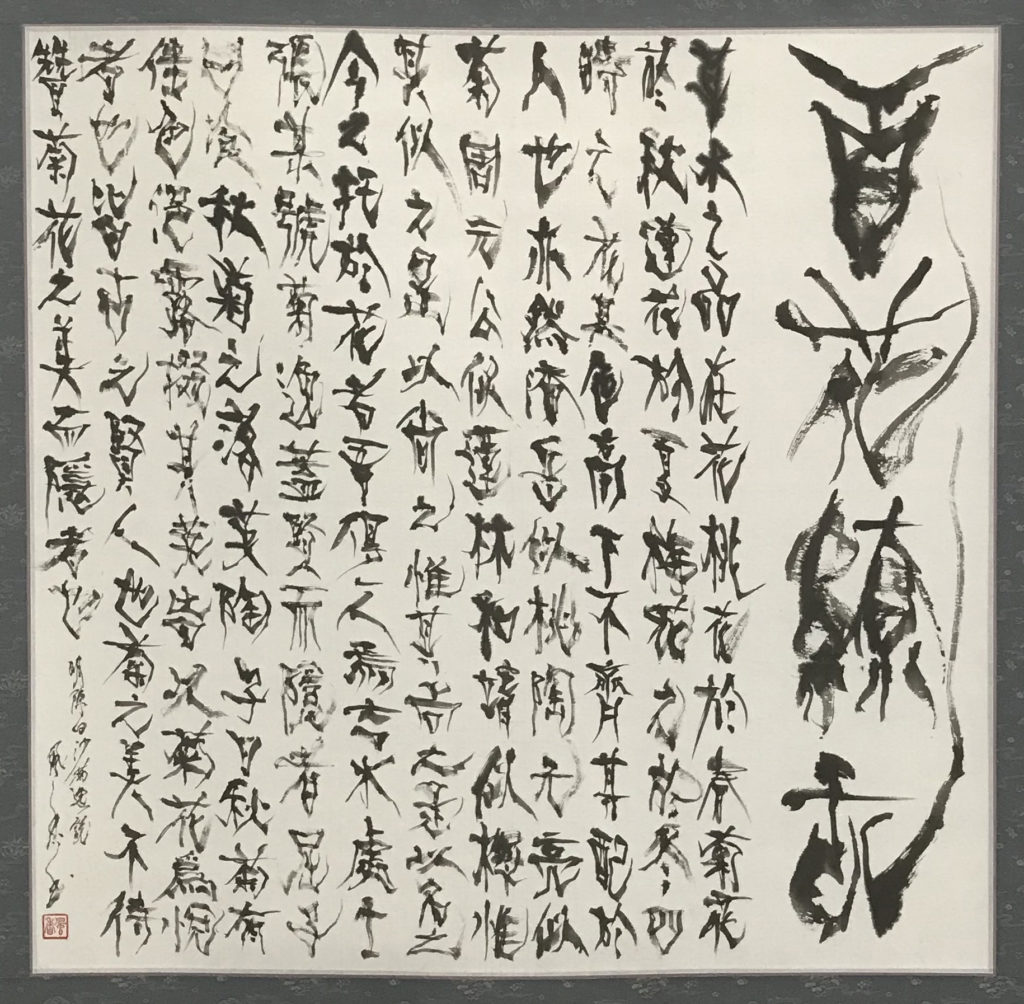 百花
草木之品在花桃花於春菊花
於秋蓮花於夏梅花於冬四
時之花其色高下不齊其配於
人也亦然潘岳似桃陶元亮似
菊周元公似蓮林和靖似梅惟
其似之是以尚之惟其尚之是以名之
今之托於花者吾得一人焉水處士
張某號菊逸蓋賢而隱者
曰秋菊之落英陶子曰秋菊有
佳色浥露掇其英皆以菊花爲悅
者也皆古之賢人也菊之美不待
贊菊花之美而隱者也
明陳白沙菊逸說